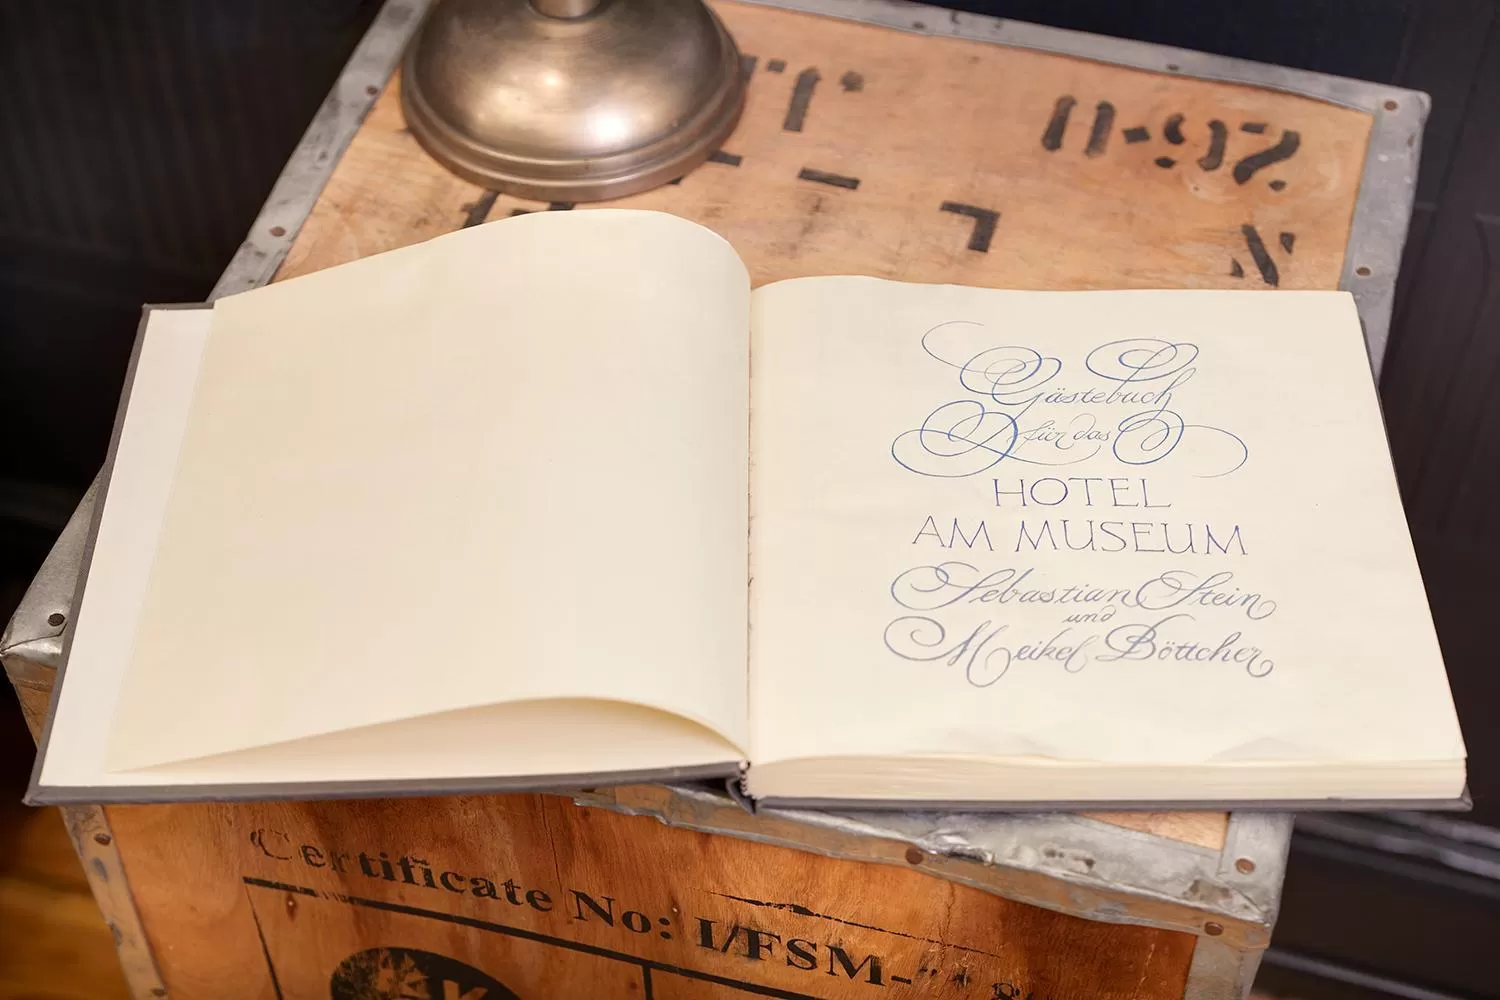 Gästebuch
für das
HOTEL
AM MUSEUM
Sebastian Stein
und
Meikel Böttcher
Certificate No: I/FSM-